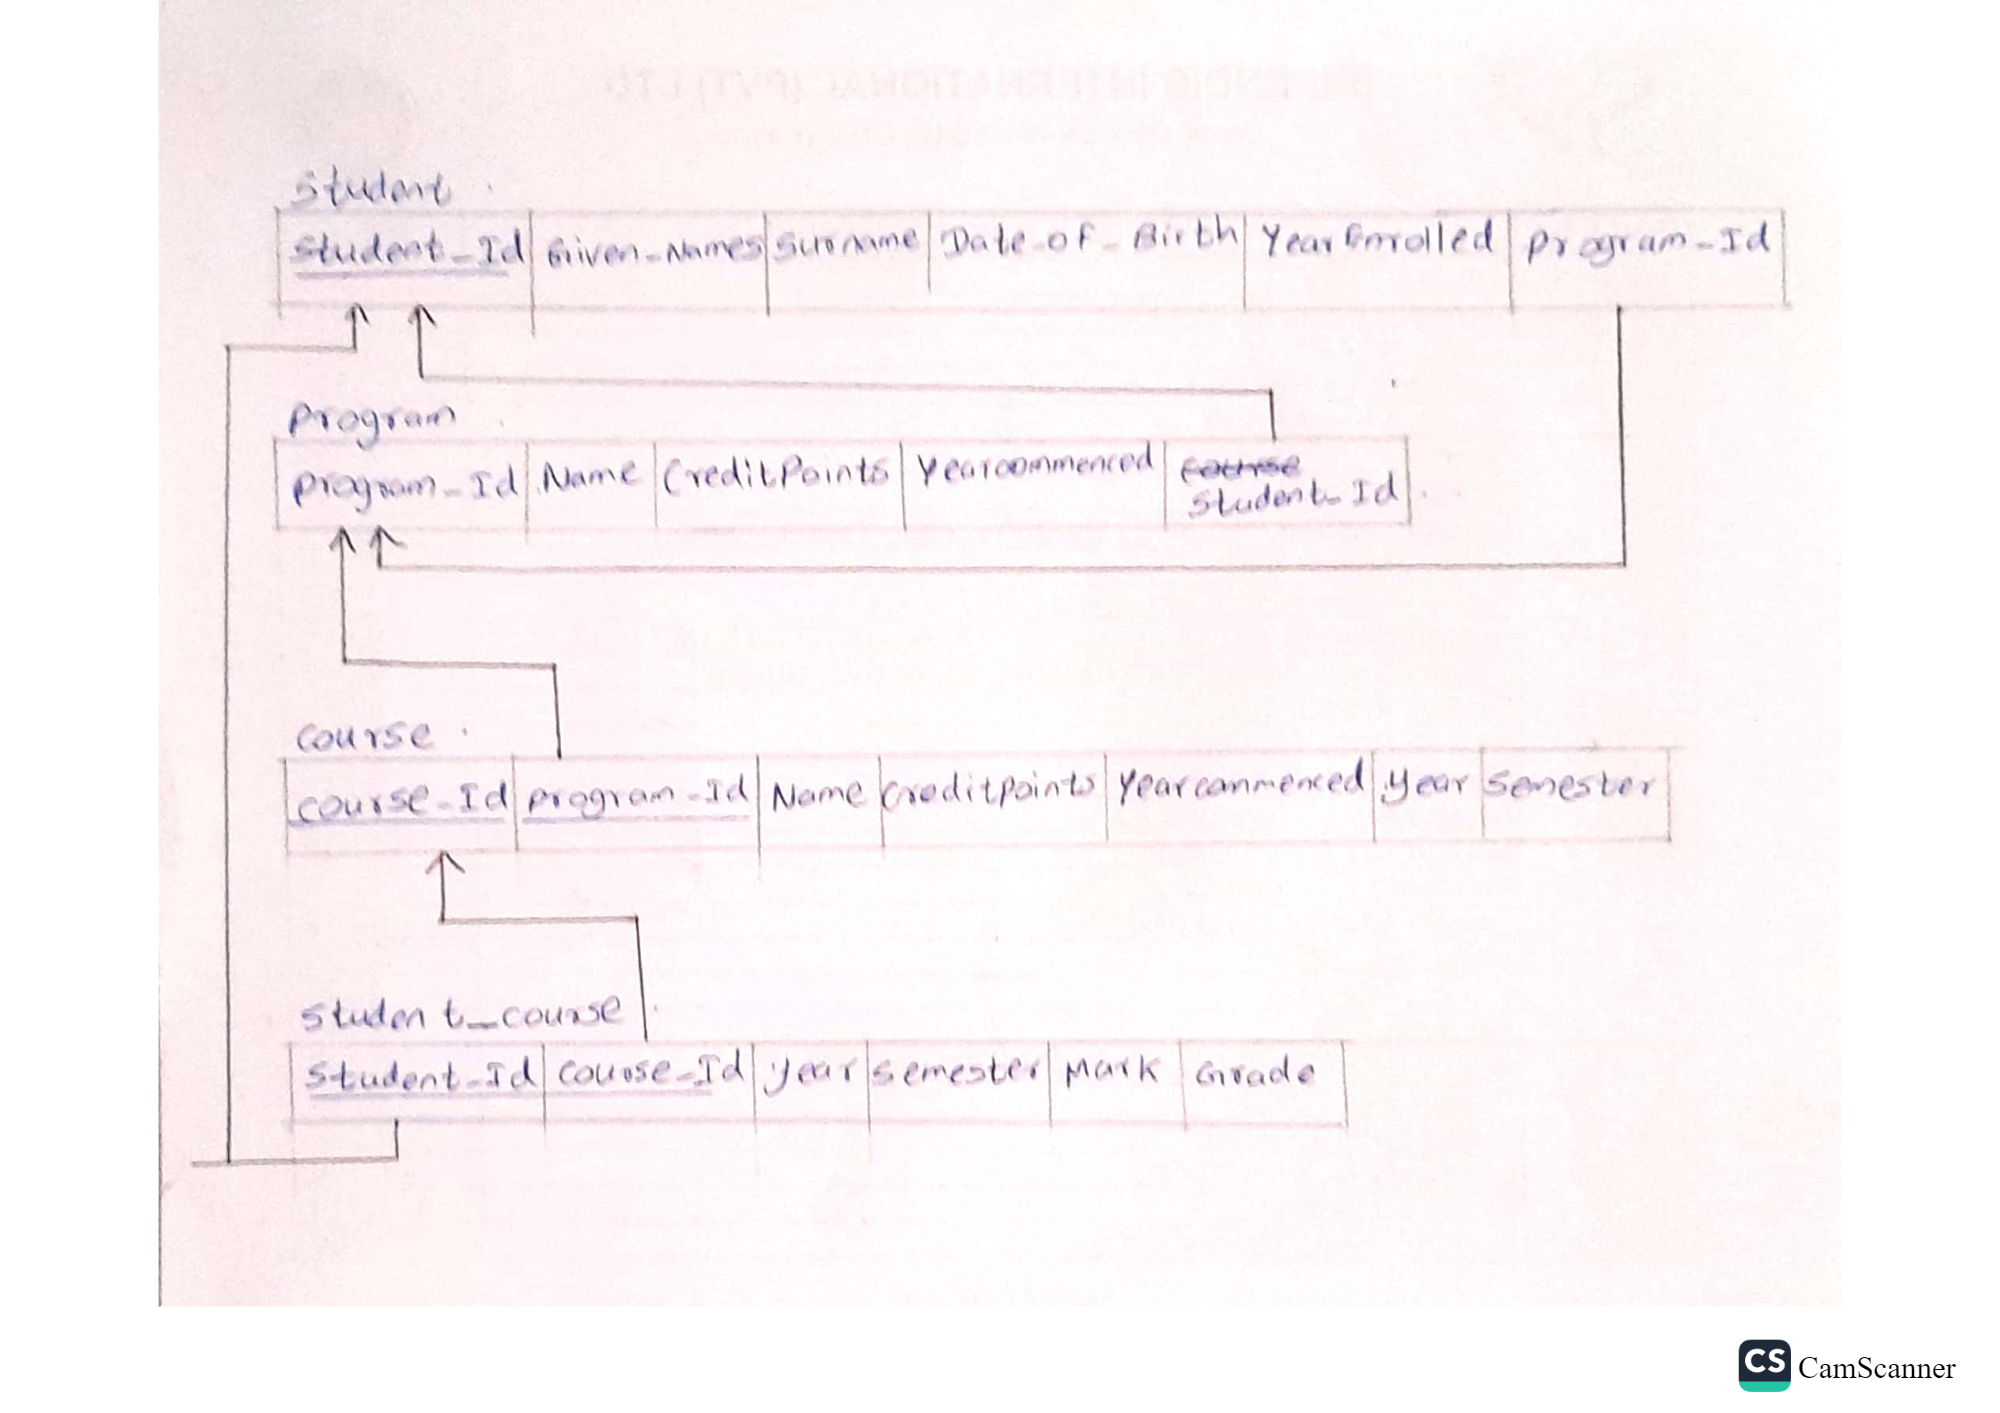 Student
Student_Id Given_Names Surname Date_of_Birth YearEnrolled Program_Id
Program
Program_Id Name CreditPoints Yearcommenced course
Student_Id
Course
Course_Id Program_Id Name Creditpoints Yearcommenced Year Semester
Student_course
Student_Id Course_Id Year Semester Mark Grade
CS CamScanner